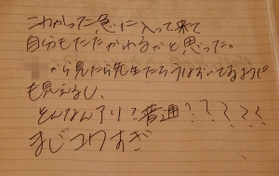 こわかった急に入って来て
自分もたたかわれるかと思った。
から見たら先生たちうばおってるように
も見えるし、
そんなんアリ?普通????
まじコワすぎ